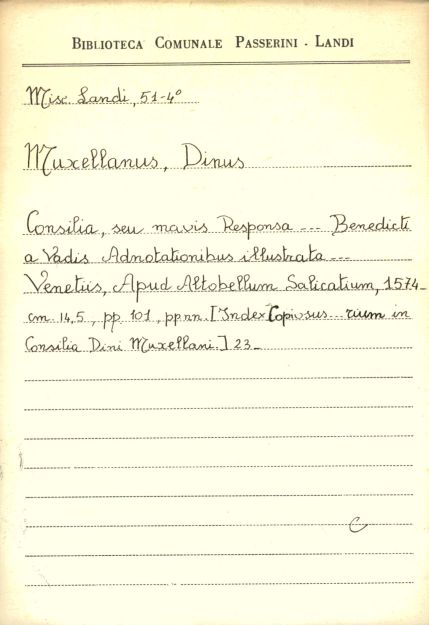 BIBLIOTECA COMUNALE PASSERINI - LANDI
Misc. Landi, 51-4°
Muxellanus, Dinus
Consilia, seu mavis Responsa --- Benedicti
a Vadis Adnotationibus illustrata ---
Venetiis, Apud Altobellum Salicatium, 1574-
cm. 14,5, pp. 101, pp.nn. [Index Copiosus --- rium in
Consilia Dini Muxellani.] 23-
C